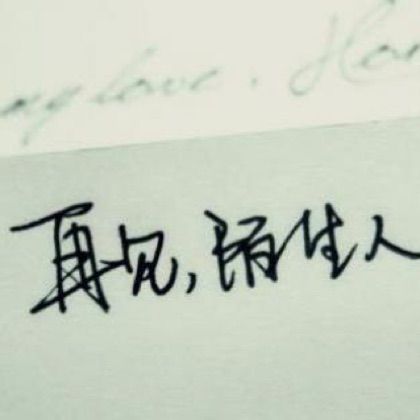 my love. Hon
再见,陌生人